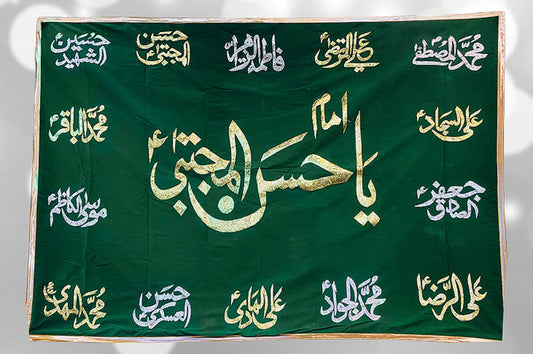 محمد المصطفیؐ
علی المرتضیؑ
فاطمة الزهراؑ
حسن المجتبیؑ
حسین الشهیدؑ
علی السجادؑ
محمد الباقرؑ
امام
یا حسن المجتبیؑ
جعفر الصادقؑ
موسی الکاظمؑ
علی الرضاؑ
محمد الجوادؑ
علی الهادیؑ
حسن العسکریؑ
محمد المهدیؑ